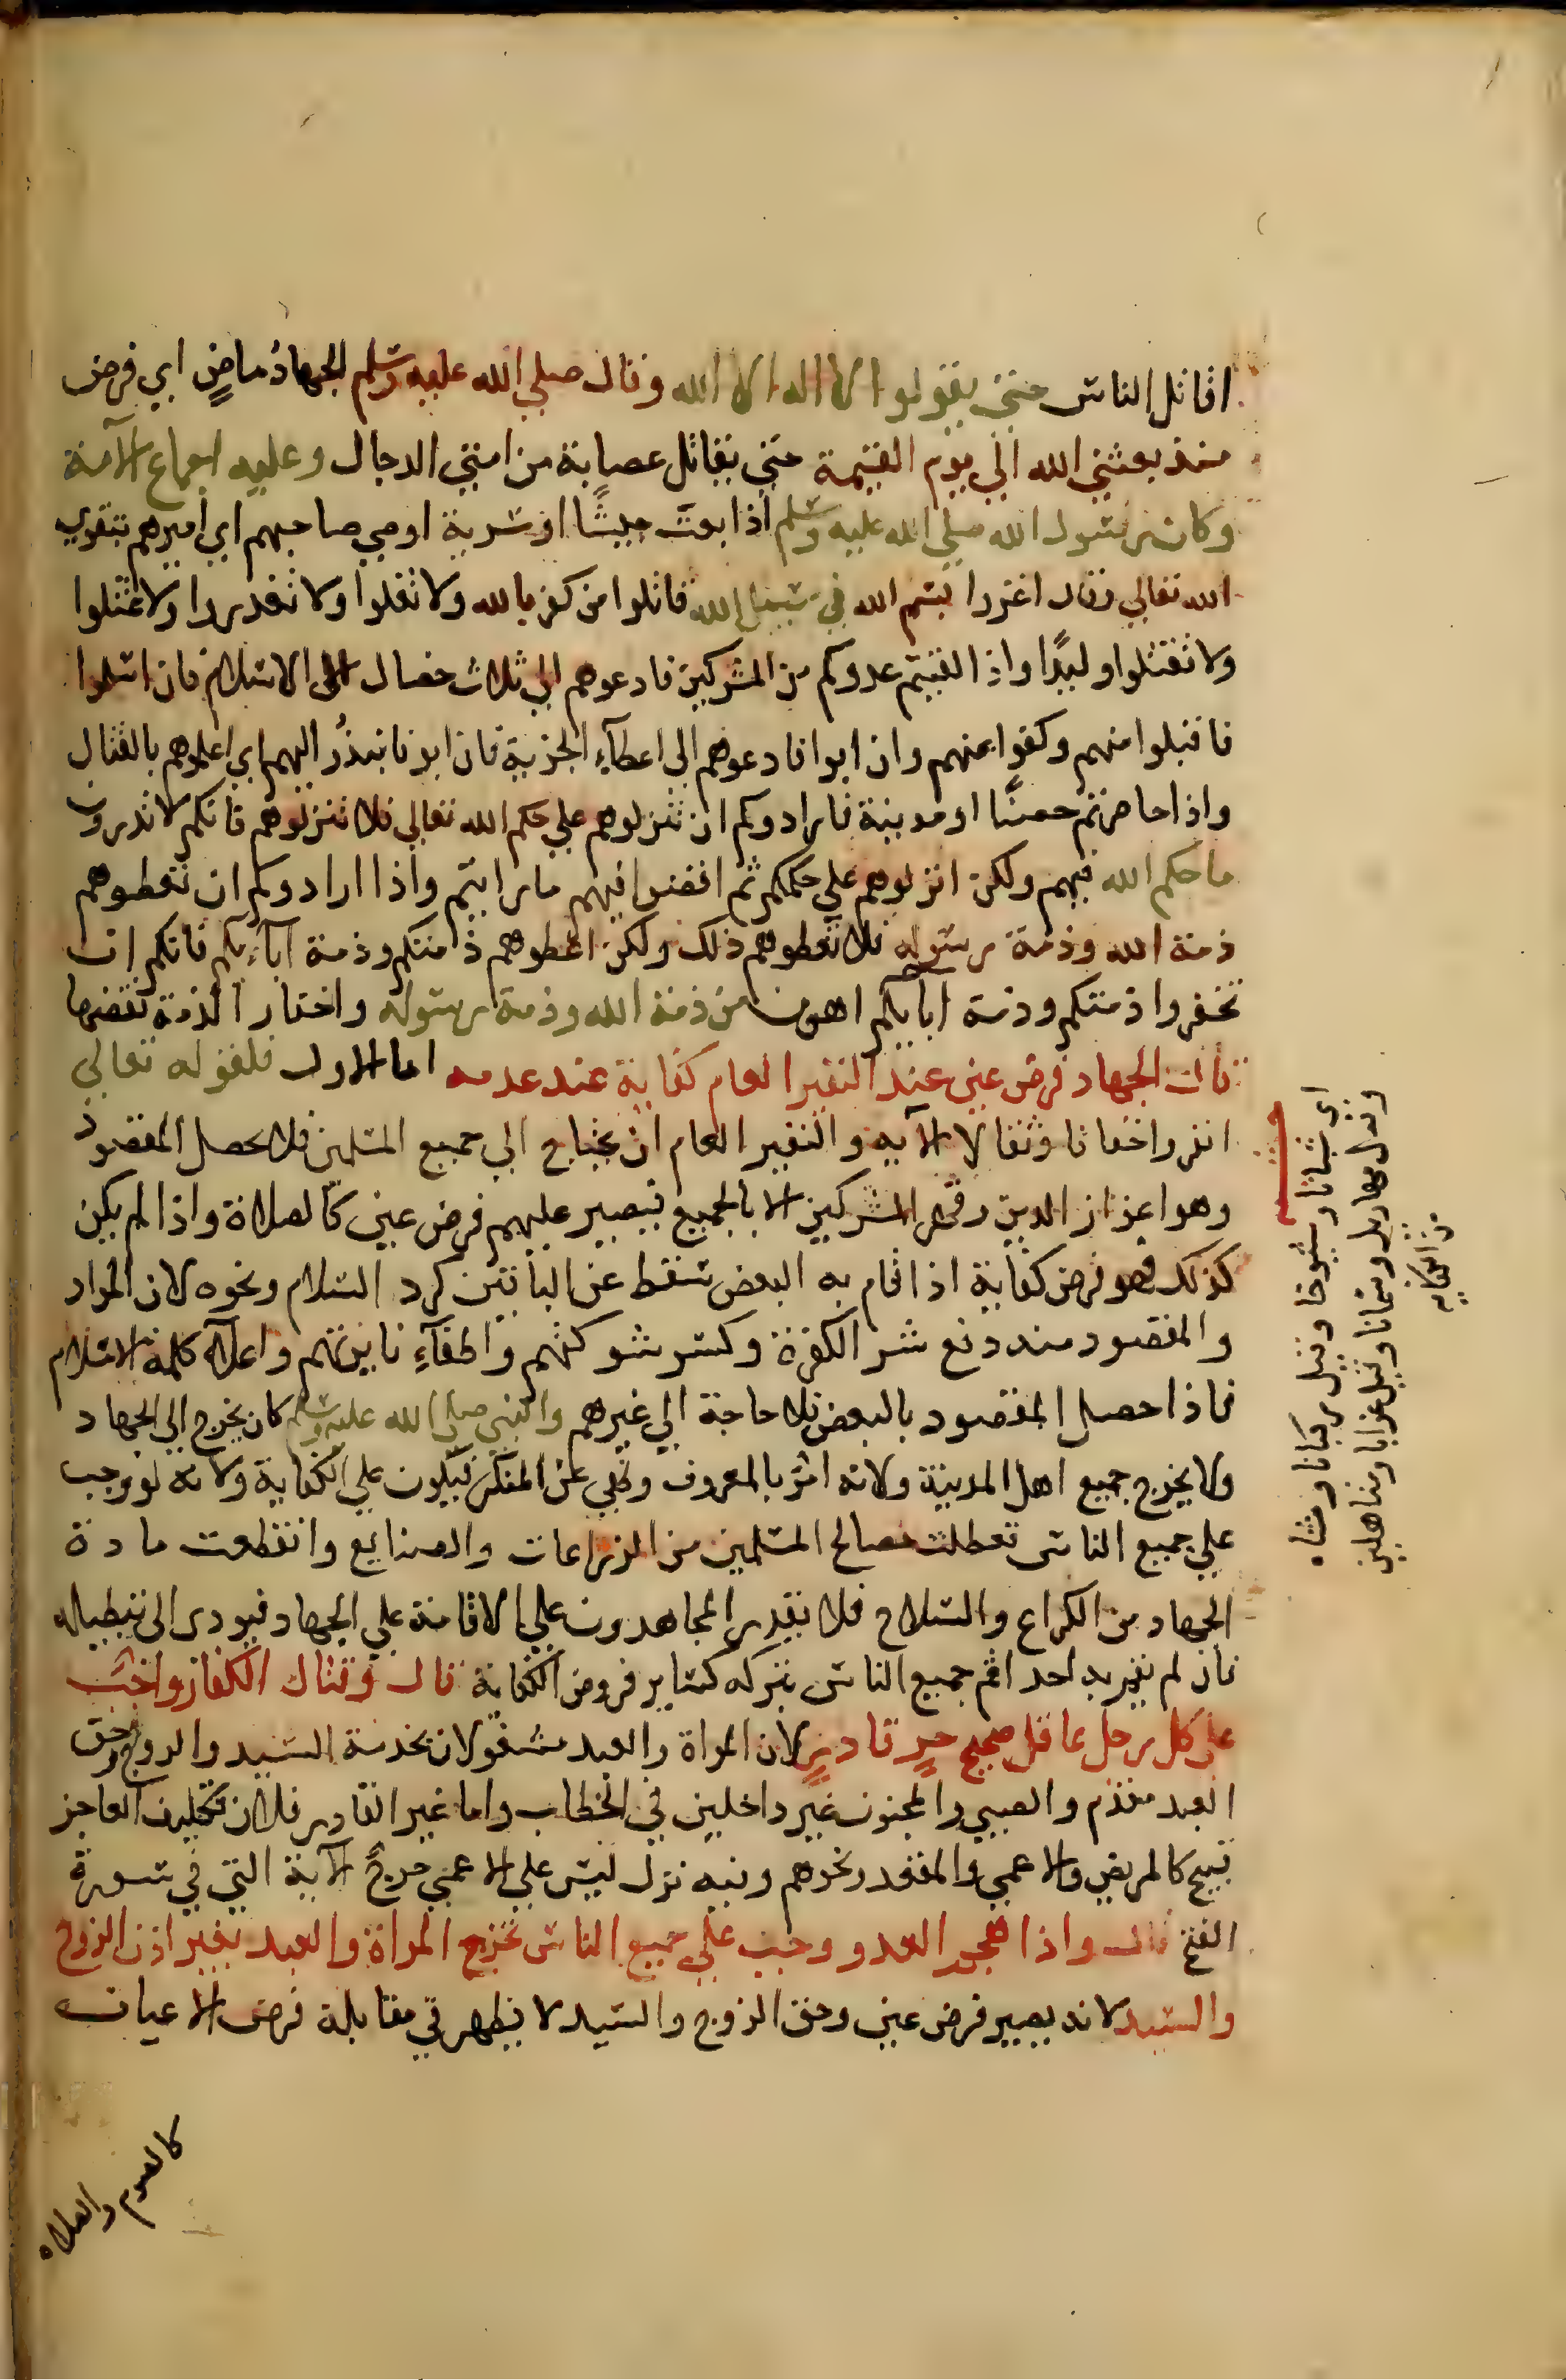 اقاتل الناس حتى يقولوا لا اله الا الله وقال صلى الله عليه وسلم الجهاد ماض اي فرض
منذ بعثني الله الى يوم القيمة حتى يقاتل عصابة من امتي الدجال وعليه اجماع الامة
وكان رسول الله صلى الله عليه وسلم اذا بعث جيشا او سرية اوصى صاحبهم اي اميرهم بتقوى
الله تعالى وقال اغزوا بسم الله في سبيل الله قاتلوا من كفر بالله ولا تغلوا ولا تغدروا ولا تمثلوا
ولا تقتلوا وليدا واذا لقيتم عدوكم من المشركين فادعوهم الى ثلاث خصال الى الاسلام فان اسلموا
فاقبلوا منهم وكفوا عنهم وان ابوا فادعوهم الى اعطاء الجزية فان ابو فانبذ اليهم اي اعلموهم بالقتال
واذا حاصرتم حصنا او مدينة فارادوكم ان تنزلوهم على حكم الله تعالى فلا تنزلوهم فانكم لا تدرون
ما حكم الله فيهم ولكن انزلوهم على حكمكم ثم اقضوا فيهم ما رايتم واذا ارادوكم ان تعطوهم
ذمة الله وذمة رسوله فلا تعطوهم ذلك ولكن اعطوهم ذمتكم وذمة آباءكم فانكم ان
تخفروا ذمتكم وذمة ابايكم اهون من ذمة الله وذمة رسوله واخفار الذمة نقضها
قال الجهاد فرض عين عند النفير العام كفاية عند عدمه اما الاول فلقوله تعالى
انفروا خفافا وثقالا الآيه والنفير العام ان يحتاج الى جميع المسلمين فلا يحصل المقصود
وهو اعزاز الدين وقهر المشركين الا بالجميع فيصير عليهم فرض عين كالصلاة واذا لم يكن
كذلك فهو فرض كفاية اذا قام به البعض سقط عن الباقين كرد السلام ونحوه لان المراد
والمقصود منه دفع شر الكفرة وكسر شوكتهم واطفاء نايرتهم واعلاء كلمة الاسلام
فاذا حصل المقصود بالبعض فلا حاجة الى غيرهم والنبي صلى الله عليه وسلم كان يخرج الى الجهاد
ولا يخرج جميع اهل المدينة ولانه امر بالمعروف ونهي عن المنكر فيكون على الكفاية ولانه لو وجب
على جميع الناس تعطلت مصالح المسلمين من الزراعات والصنايع وانقطعت مادة
الجهاد من الكراع والسلاح فلا يقدر المجاهدون على الاقامة على الجهاد فيودى الى تبطيله
فان لم يقم به احد اثم جميع الناس بتركه كساير فروض الكفاية قال وقتال الكفار واجب
على كل رجل عاقل صحيح حر قادر لان المراة والعبد مشغولان بخدمة السيد والزوج وحق
العبد مقدم والصبي والمجنون غير داخلين في الخطاب واما غير القادر فلان تكليف العاجز
قبيح كالمريض والاعمى والمقعد ونحوهم وفيه نزل ليس على الاعمى حرج الآية التي في سورة
الفتح قال واذا هجم العدو وجب على جميع الناس تخرج المراة والعبد بغير اذن الزوج
والسيد لانه يصير فرض عين وحق الزوج والسيد لا يظهر في مقابلة فرض الاعيان
كالصوم والصلاه
اى شبانا وشيوخا وقيل ركبانا ومشاه
وقيل مهازيل وسمانا وقيل عزابا ومتاهلين